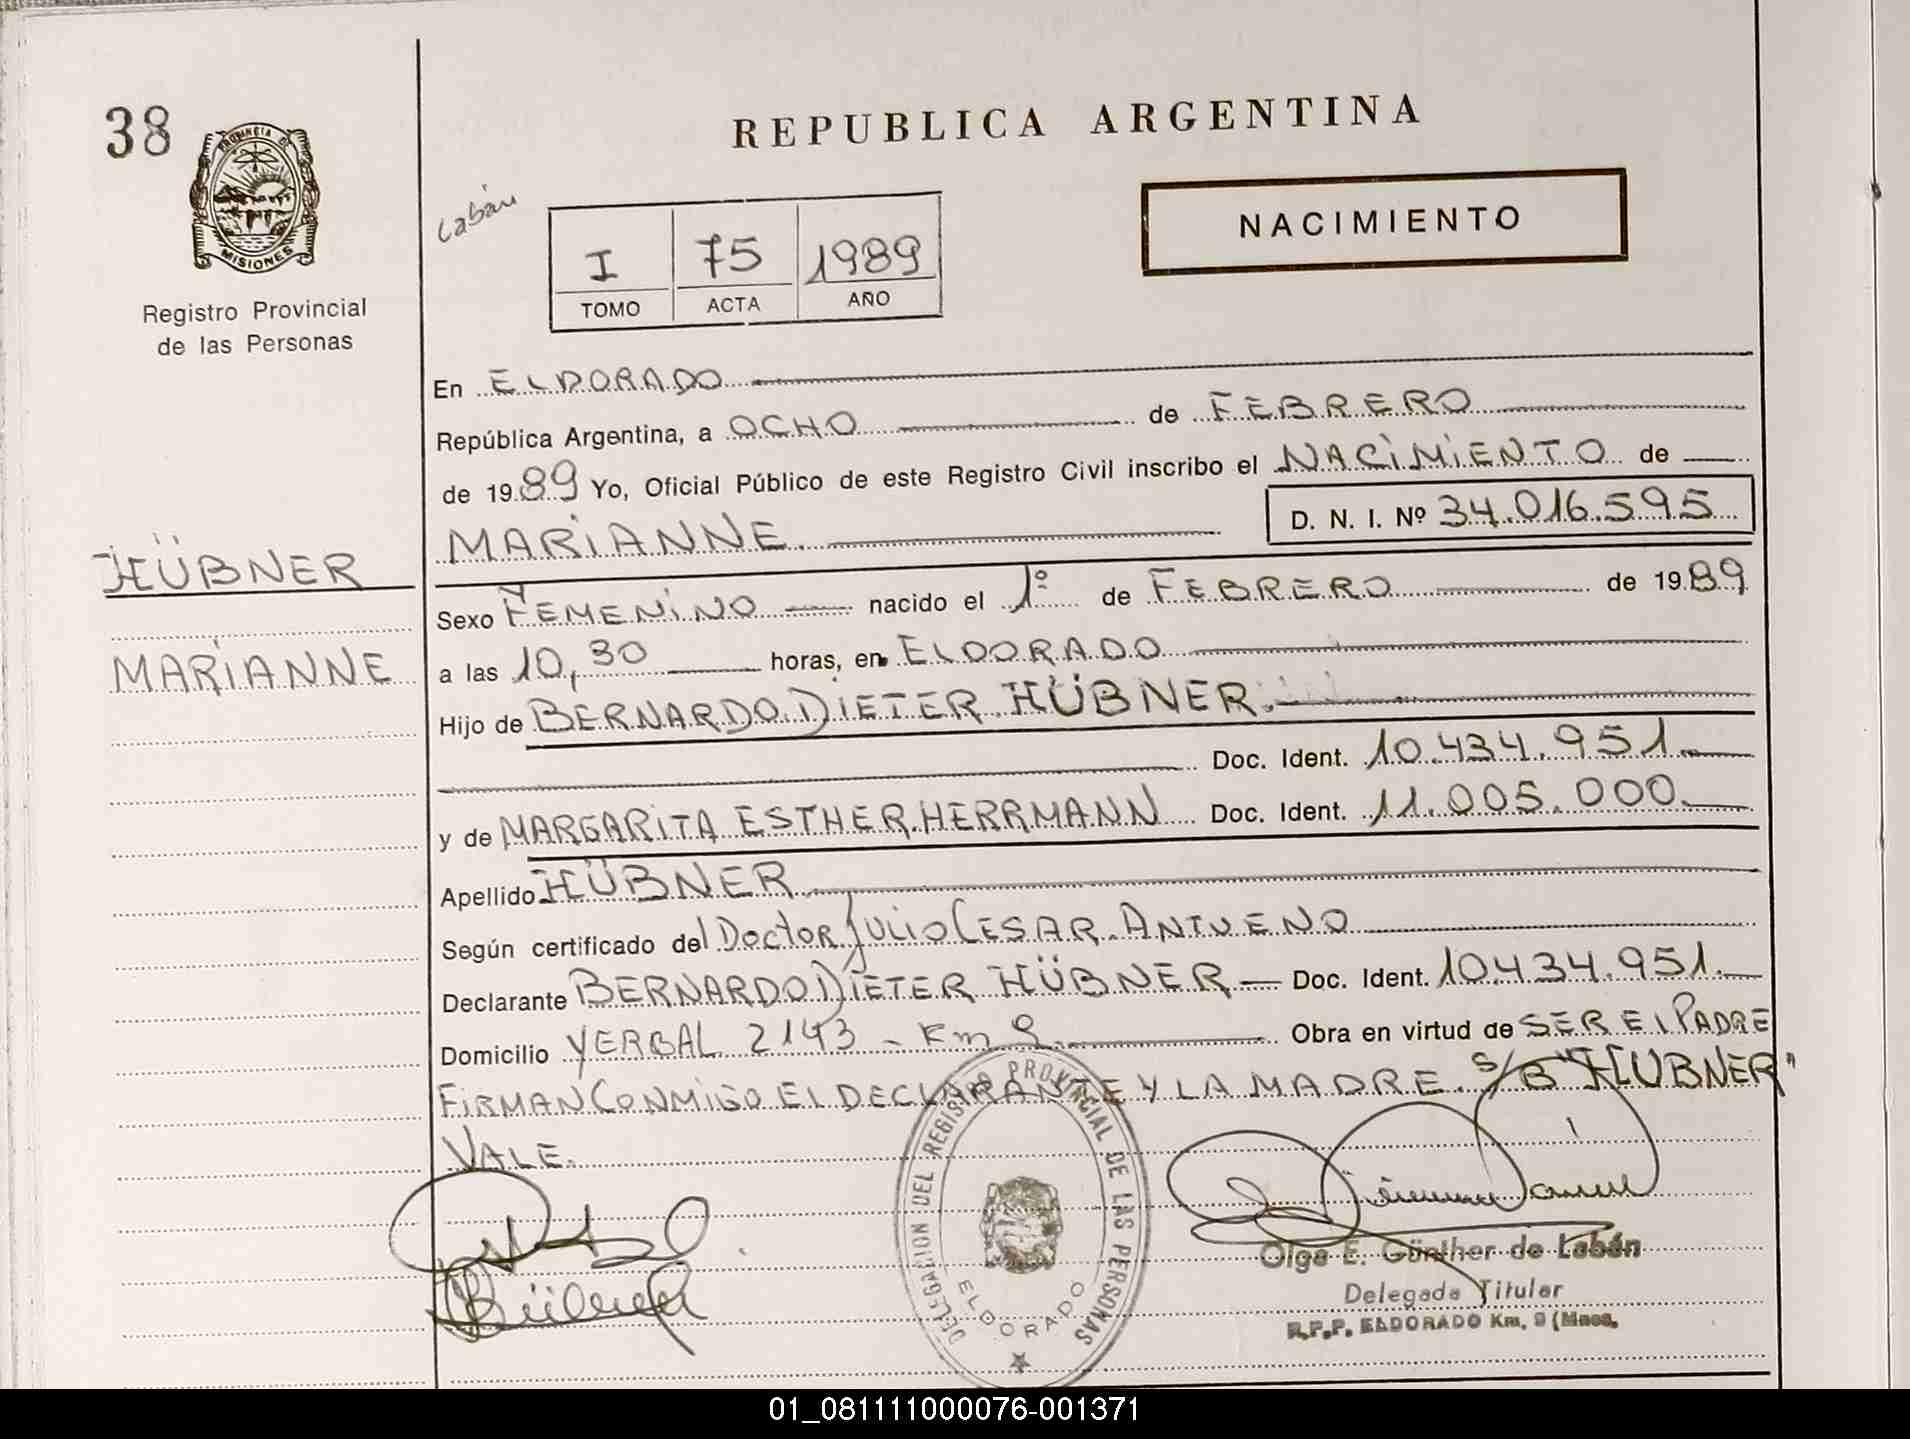 38
PROVINCIA DE
MISIONES
Registro Provincial
de las Personas
REPUBLICA ARGENTINA
Labán
NACIMIENTO
I 75 1989
TOMO ACTA AÑO
En ELDORADO
República Argentina, a OCHO de FEBRERO
de 1989 Yo, Oficial Público de este Registro Civil inscribo el NACIMIENTO de
MARIANNE. D. N. I. Nº 34.016.595
HÜBNER
MARIANNE
Sexo FEMENINO nacido el 1º de FEBRERO de 1989
a las 10,30 horas, en ELDORADO
Hijo de BERNARDO DIETER HÜBNER.
Doc. Ident. 10.434.951.
y de MARGARITA ESTHER HERRMANN Doc. Ident. 11.005.000.
Apellido HÜBNER
Según certificado del DOCTOR JULIO CESAR ANTUENO
Declarante BERNARDO DIETER HÜBNER — Doc. Ident. 10.434.951.
Domicilio YERBAL 2143 - Km 9. Obra en virtud de SER EL PADRE
FIRMAN CONMIGO EL DECLARANTE Y LA MADRE. S/B "HÜBNER"
VALE.
DELEGACION DEL REGISTRO PROVINCIAL DE LAS PERSONAS
ELDORADO
Olga E. Günther de Labán
Delegada Titular
R.P.P. ELDORADO Km. 9 (Mnes.
01_081111000076-001371